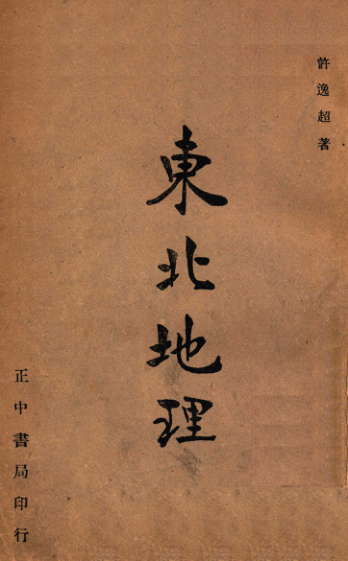 許逸超著
東北地理
正中書局印行